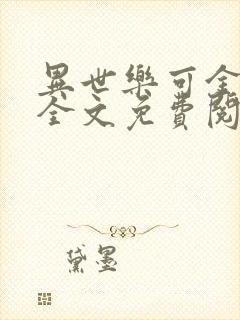 異世樂可全
全文免費閱
黛墨